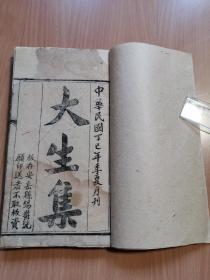 中華民國丁巳年季夏月刊
大生集
板存安岳縣
願印送者不取板資